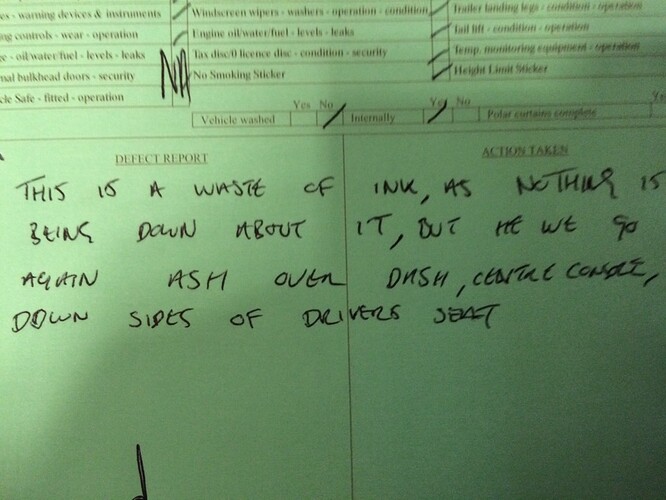 es - warning devices & instruments Windscreen wipers - washers - operation - condition Trailer landing legs - condition - operation
ng controls - wear - operation Engine oil/water/fuel - levels - leaks Tail lift - condition - operation
ge - oil/water/fuel - levels - leaks Tax disc/0 licence disc - condition - security Temp. monitoring equipment - operation
nal bulkhead doors - security NA No Smoking Sticker Height Limit Sticker
cle Safe - fitted - operation
Yes No Yes No Ye
Vehicle washed Internally Polar curtains complete
DEFECT REPORT ACTION TAKEN
THIS IS A WASTE OF INK, AS NOTHING IS
BEING DOWN ABOUT IT, BUT HE WE GO
AGAIN ASH OVER DASH, CENTRE CONSOLE,
DOWN SIDES OF DRIVERS SEAT